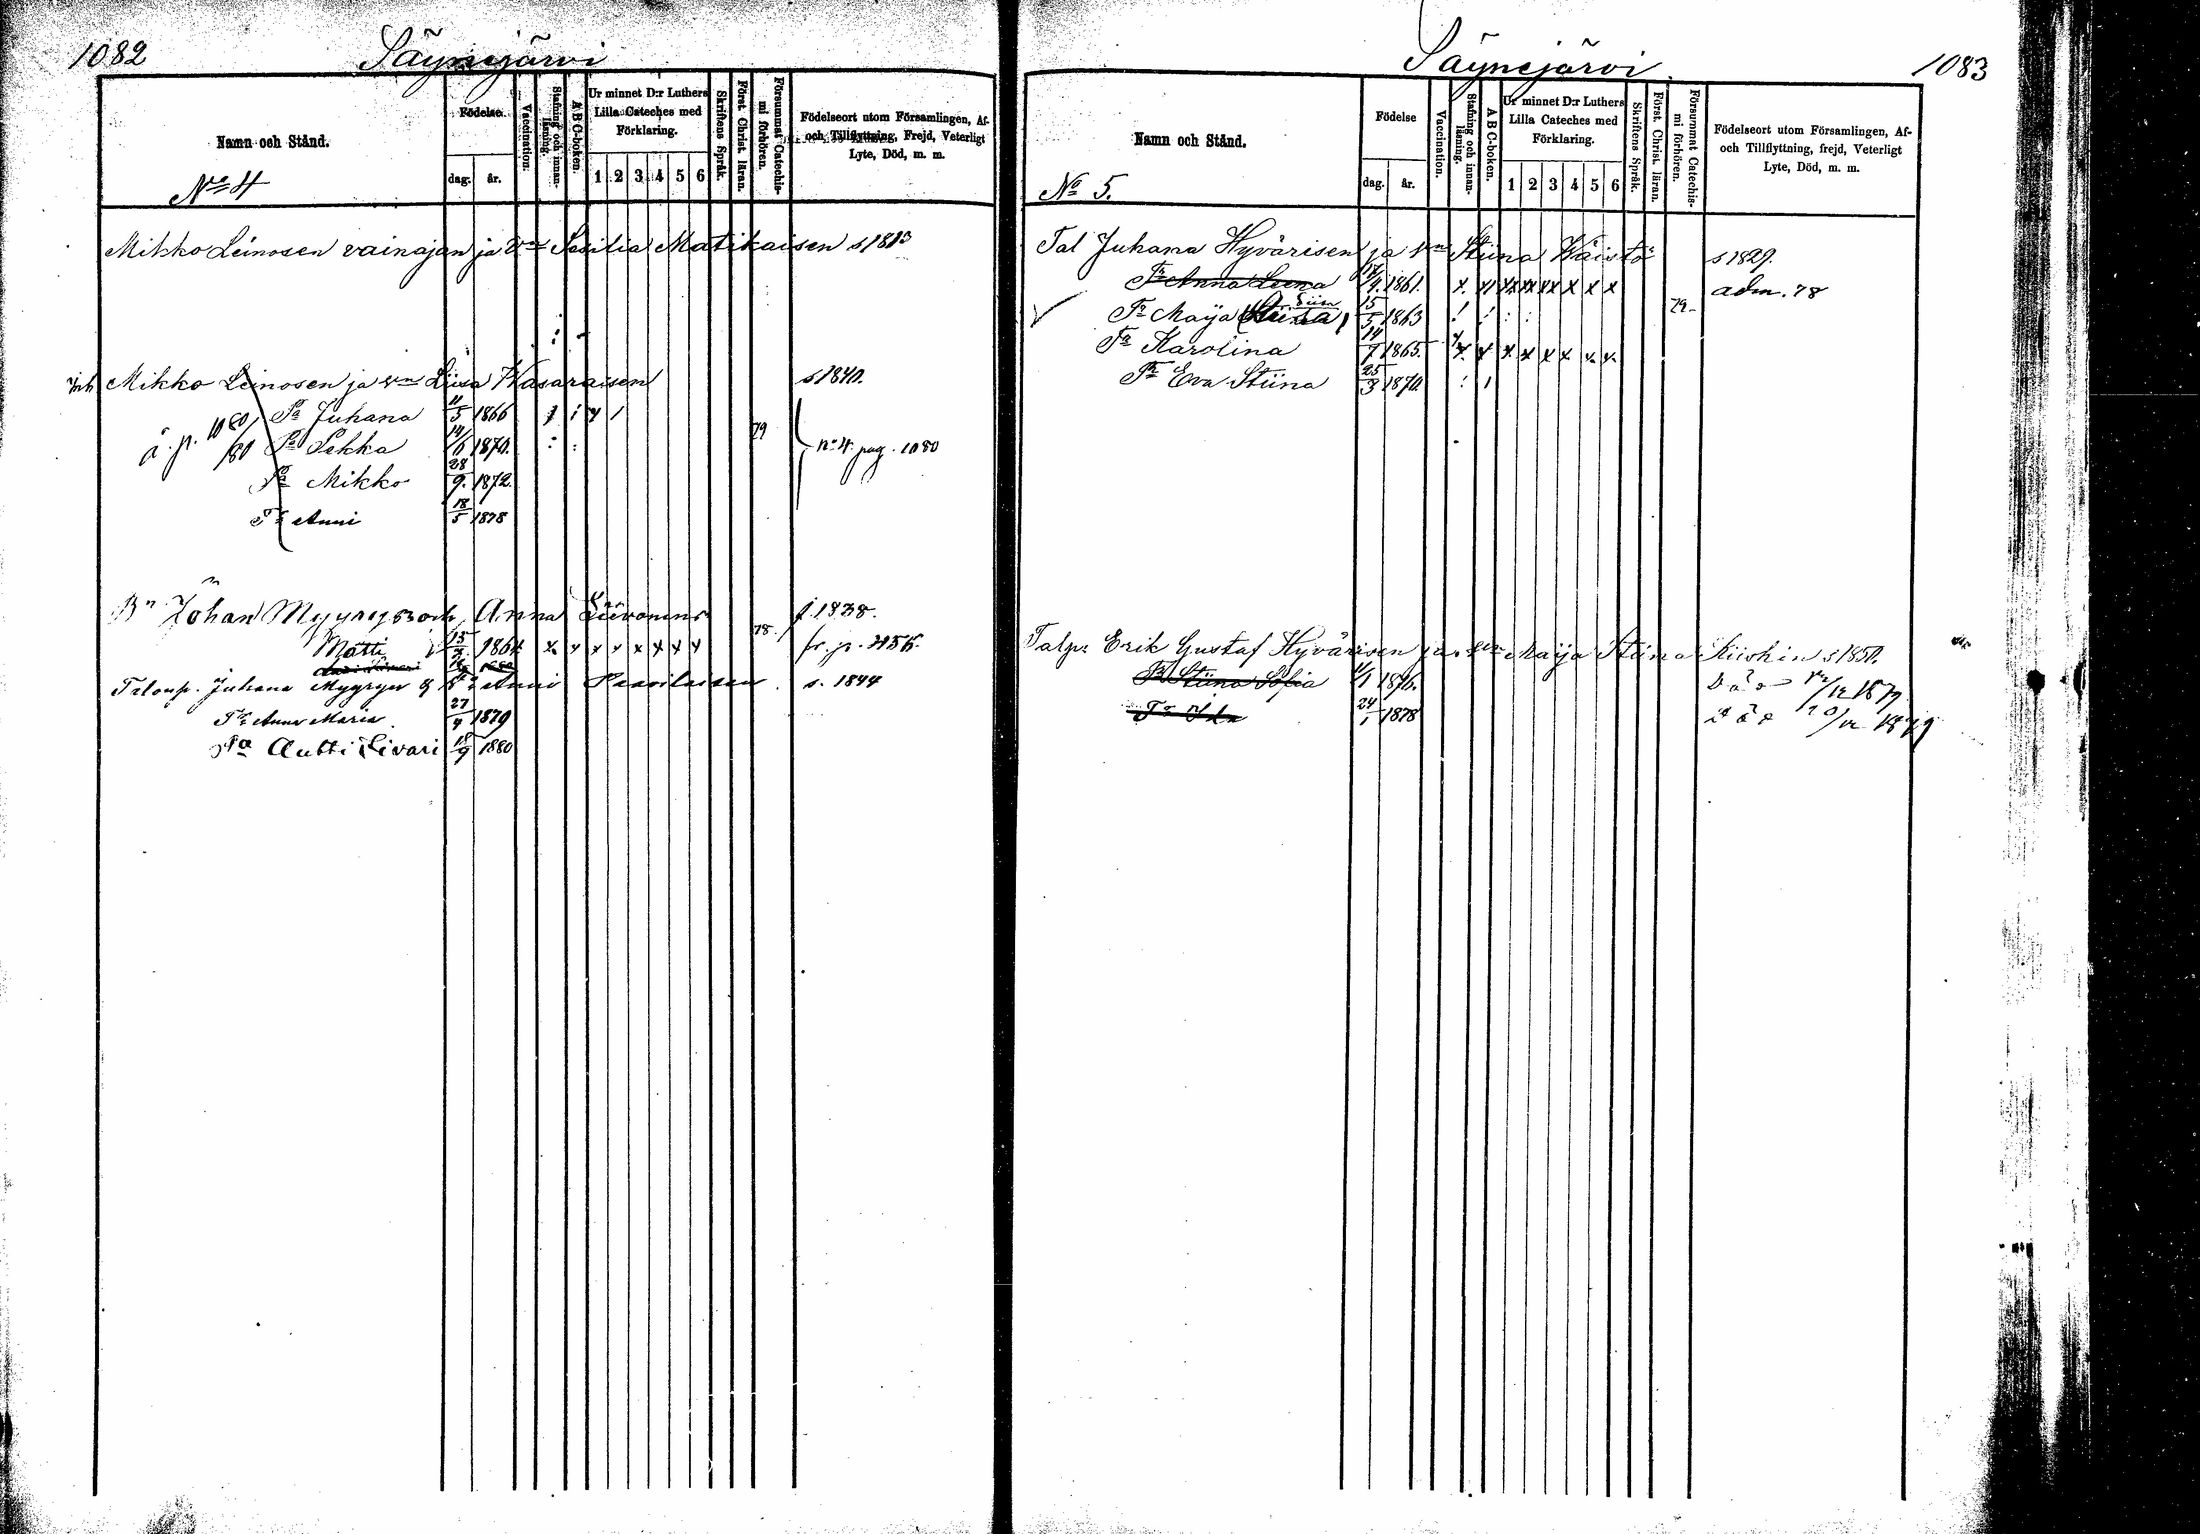 1082
Säynejärvi
Namn och Stånd.
Födelse.
dag. år.
Vaccination.
Stafning och innanläsning.
A B C-boken.
Ur minnet D:r Luthers Lilla Cateches med Förklaring.
1 2 3 4 5 6
Skriftens Språk.
Först. Christ. läran.
Försummat Catechismi förhören.
Födelseort utom Församlingen, Af- och Tillflyttning, Frejd, Veterligt Lyte, Död, m. m.
No 4
Mikko Leinosen vainajan ja Vmo Sesilia Matikaisen s 1813
Mikko Leinosen ja vm Liisa Wasaraisen s 1840.
Pa Juhana 11/5 1866
å. p. 1080/80 Pa Pekka 14/6 1870. 79 no 4. pag. 1080
Pa Mikko 28/9. 1872.
Tr Anni 18/5 1878
Bn Johan Myyryis och Anna f. 1838.
Matti 1864 x x x x x x x x 78. fr. p. 456.
Taloup. Juhana Myyryn & Anni s. 1844
Tr Anna Maria 27/4 1879
Pa Antti Iivari 18/9 1880
Säynejärvi
1083
Namn och Stånd.
Födelse
dag. år.
Vaccination.
Stafning och innanläsning.
A B C-boken.
Ur minnet D:r Luthers Lilla Cateches med Förklaring.
1 2 3 4 5 6
Skriftens Språk.
Först. Christ. läran.
Försummat Catechismi förhören.
Födelseort utom Församlingen, Af- och Tillflyttning, frejd, Veterligt Lyte, Död, m. m.
No 5.
Tal Juhana Hyvärisen ja Vm Stiina Wäistö s 1829.
Tr Anna Leena 1861. adm. 78
Tr Maija 15/5 1863 79
Tr Karolina 14/7 1865.
Tr Eva Stiina 25/3 1870.
Talp. Erik Gustaf Hyvärisen ja Vm Maija Stiina Kiiskin s 1850.
Tr Stiina Sofia 1876.
Tr Ida 24/1 1878